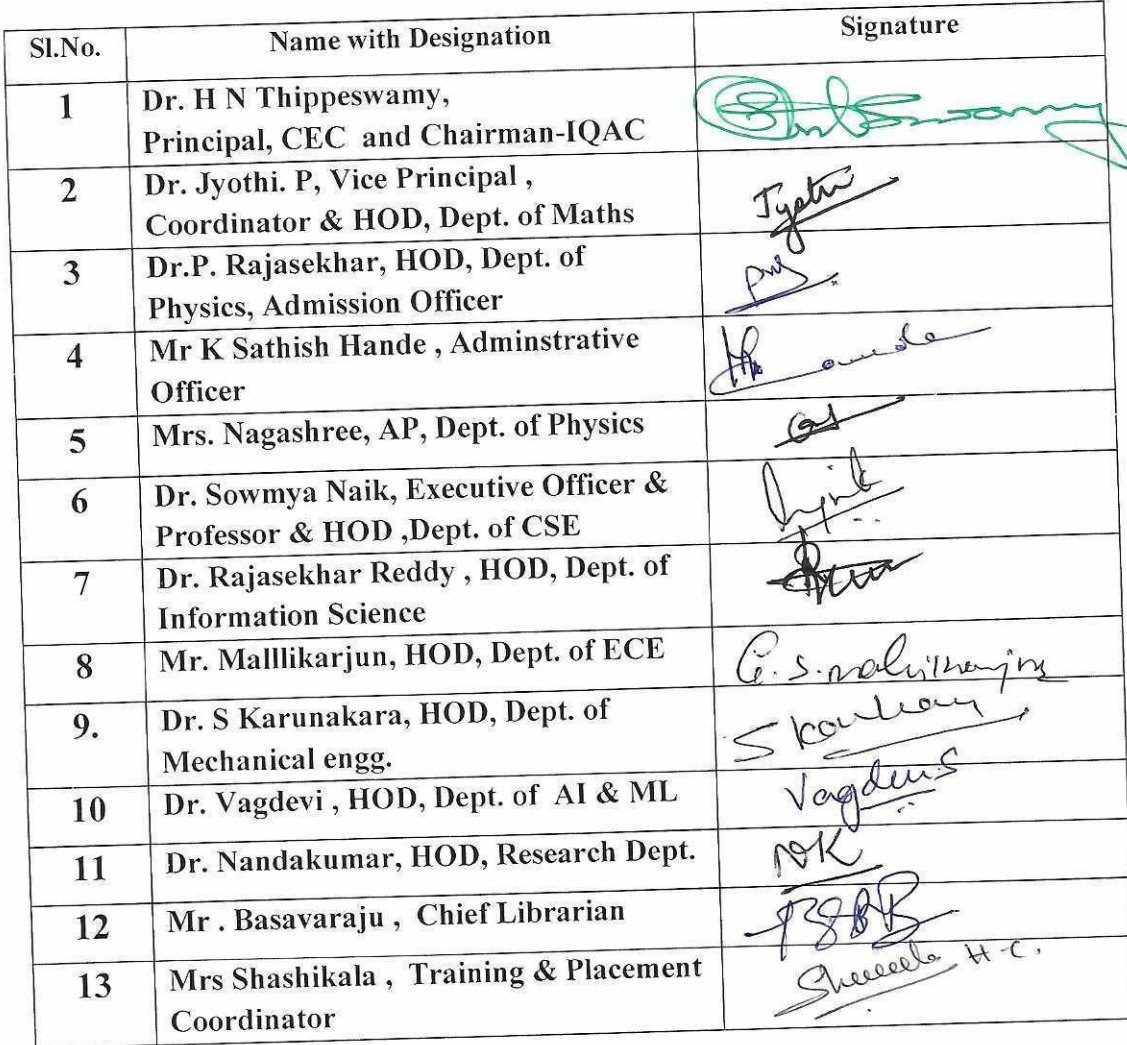 Sl.No. Name with Designation Signature
1 Dr. H N Thippeswamy,
Principal, CEC and Chairman-IQAC
2 Dr. Jyothi. P, Vice Principal , Jyothi
Coordinator & HOD, Dept. of Maths
3 Dr.P. Rajasekhar, HOD, Dept. of
Physics, Admission Officer
4 Mr K Sathish Hande , Adminstrative
Officer
5 Mrs. Nagashree, AP, Dept. of Physics
6 Dr. Sowmya Naik, Executive Officer &
Professor & HOD ,Dept. of CSE
7 Dr. Rajasekhar Reddy , HOD, Dept. of
Information Science
8 Mr. Malllikarjun, HOD, Dept. of ECE G. S.
9. Dr. S Karunakara, HOD, Dept. of S
Mechanical engg.
10 Dr. Vagdevi , HOD, Dept. of AI & ML
11 Dr. Nandakumar, HOD, Research Dept. NK
12 Mr . Basavaraju , Chief Librarian
13 Mrs Shashikala , Training & Placement H.C.
Coordinator